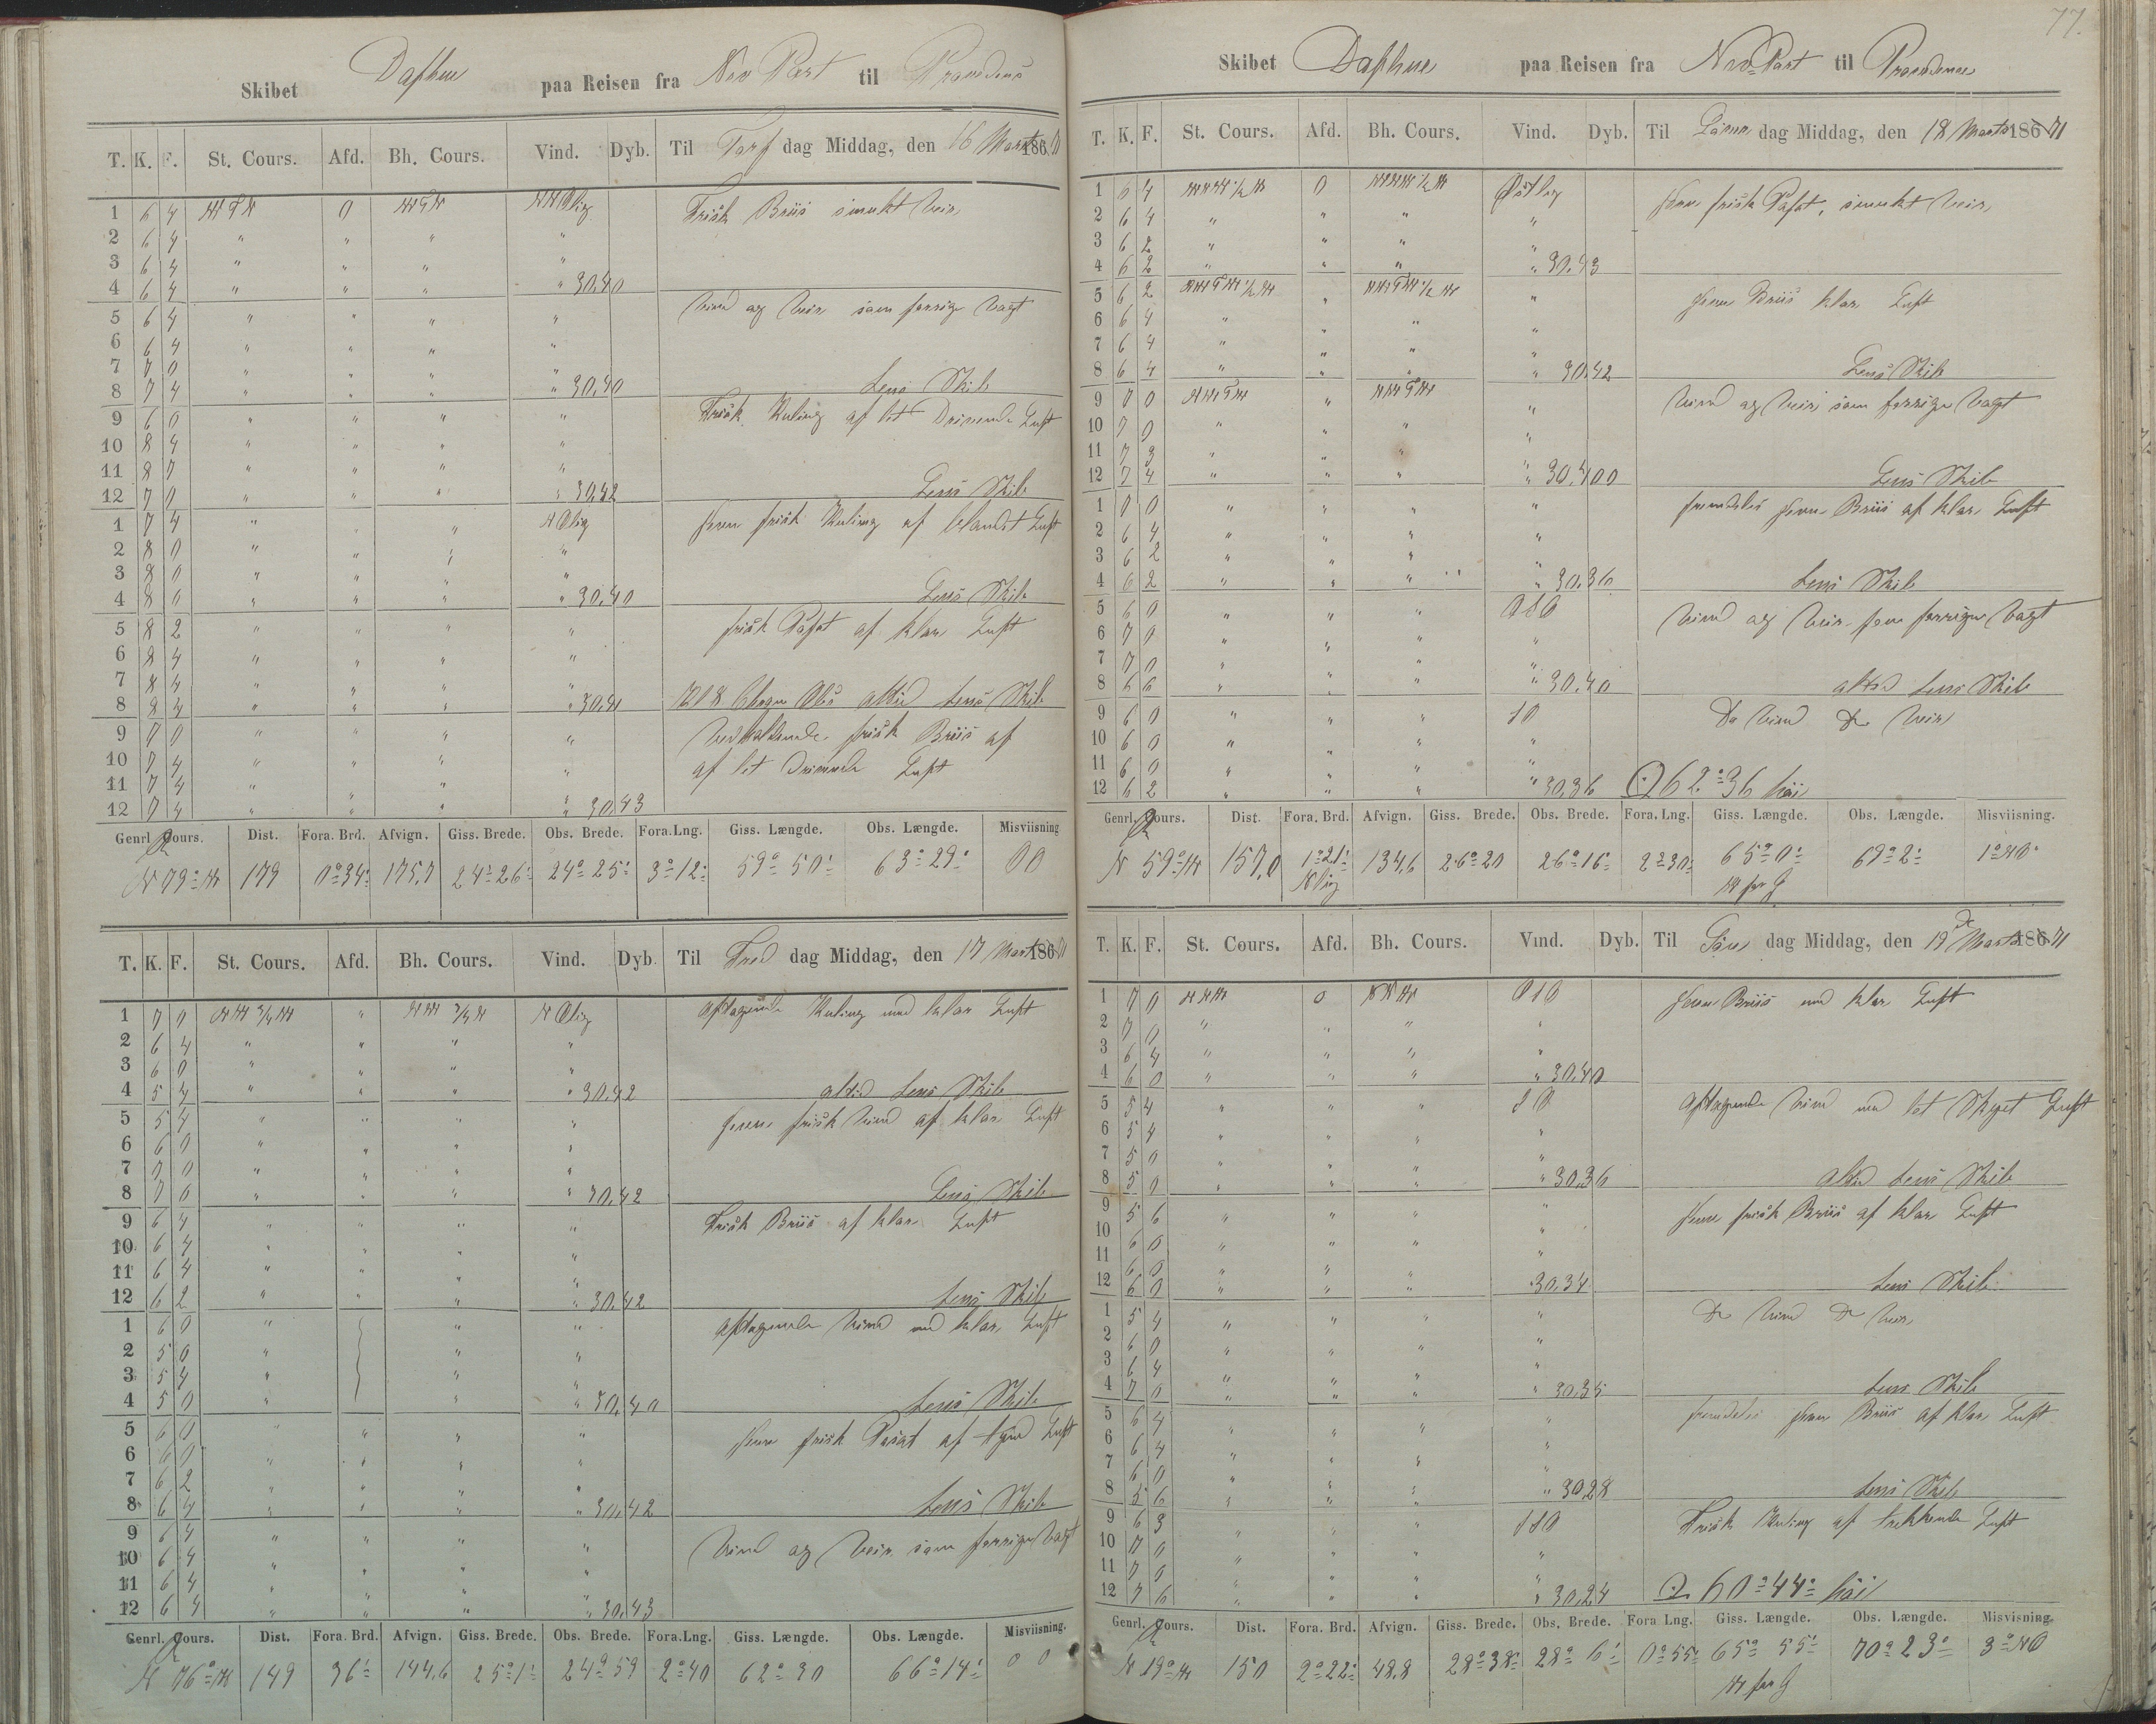 77.
Skibet Daphne paa Reisen fra New Port til Providence
T. K. F. St. Cours. Afd. Bh. Cours. Vind. Dyb. Til Torsdag Middag, den 16 Marts 1871
1 6 4 0 NNOlig Frisk Briis smukt Veir
2 6 4 " " " "
3 6 4 " " " "
4 6 4 " " " " 30.40
5 6 4 " " " " Vind og Veir som forrige Vagt
6 6 4 " " " "
7 7 0 " " " "
8 7 4 " " " " 30.40 Lens Skib
9 6 0 " " " " Frisk Kuling af let Drivende Luft
10 8 4 " " " "
11 8 7 " " " "
12 7 0 " " " " 30.42 Lens Skib
1 7 4 " " " NOlig Jevn frisk Kuling af blandet Luft
2 8 0 " " " "
3 8 0 " " " "
4 8 0 " " " " 30.40 Lens Skib
5 8 2 " " " " frisk Passat af klar Luft
6 8 4 " " " "
7 8 4 " " " "
8 8 4 " " " " 30.41 altid Lens Skib
9 7 0 " " " " Vedholdende frisk Briis af
10 7 4 " " " " af let Drivende Luft
11 7 4 " " " "
12 7 4 " " " " 30.43
Genrl. Cours. Dist. Fora. Brd. Afvign. Giss. Brede. Obs. Brede. Fora. Lng. Giss. Længde. Obs. Længde. Misviisning
N 79° W 179 0° 34' 175,7 24° 26' 24° 25' 3° 12' 59° 50' 63° 29' 00
T. K. F. St. Cours. Afd. Bh. Cours. Vind. Dyb. Til Fredag Middag, den 17 Marts 1871
1 7 0 NW 3/4 W " NW 3/4 W NOlig Aftagende Kuling med klar Luft
2 6 4 " " " "
3 6 0 " " " "
4 5 4 " " " " 30.42 altid Lens Skib
5 5 4 " " " " Jevn frisk Vind af klar Luft
6 6 0 " " " "
7 7 0 " " " "
8 7 0 " " " " 30.42 Lens Skib
9 6 4 " " " " Frisk Briis af klar Luft
10 6 4 " " " "
11 6 4 " " " "
12 6 2 " " " " 30.42 Lens Skib
1 6 0 " " " Aftagende Vind med klar Luft
2 5 0 " " "
3 5 4 " " "
4 5 0 " " " 30.40 Lens Skib
5 6 0 " " " " Jevn frisk Passat af Luft
6 6 0 " " " "
7 6 2 " " " "
8 6 4 " " " " 30.42 Lens Skib
9 6 4 " " " " Vind og Veir som forrige Vagt
10 6 4 " " " "
11 6 4 " " " "
12 6 4 " " " " 30.43
Genrl. Cours. Dist. Fora. Brd. Afvign. Giss. Brede. Obs. Brede. Fora. Lng. Giss. Længde. Obs. Længde. Misviisning.
N 76° W 149 36' 144,6 25° 1' 24° 59 2° 40 62° 30 66° 14' 0 0
Skibet Daphne paa Reisen fra New Port til Providence
T. K. F. St. Cours. Afd. Bh. Cours. Vind. Dyb. Til Løverdag Middag, den 18 Marts 1871
1 6 4 0 Østlig Jevn frisk Passat, smukt Veir
2 6 4 " " " "
3 6 2 " " " "
4 6 2 " " " " 30.43
5 6 2 " " Jevn Briis klar Luft
6 6 4 " " " "
7 6 4 " " " "
8 6 4 " " " " 30.42 Lens Skib
9 7 0 " " Vind og Veir som forrige Vagt
10 7 0 " " " "
11 7 3 " " " "
12 7 4 " " " " 30.400 Lens Skib
1 7 0 " " " " fremdeles jevn Briis af klar Luft
2 6 4 " " " "
3 6 2 " " " "
4 6 2 " " " " 30.36 Lens Skib
5 6 0 " " " OSO Vind og Veir som forrige Vagt
6 7 0 " " " "
7 7 0 " " " "
8 6 6 " " " " 30.40 altid Lens Skib
9 6 0 " " " SO Do Vind Do Veir
10 6 0 " " " "
11 6 0 " " " "
12 6 2 " " " " 30.36 62° 36
Genrl. Cours. Dist. Fora. Brd. Afvign. Giss. Brede. Obs. Brede. Fora. Lng. Giss. Længde. Obs. Længde. Misviisning.
N 59° W 157,0 1° 21' Nlig 134,6 26° 20 26° 16' 2° 30' 65° 0' W for G 69° 2' 1° NO
T. K. F. St. Cours. Afd. Bh. Cours. Vind. Dyb. Til Søndag Middag, den 19 de Marts 1871
1 7 0 NNW 0 NNW OSO Jevn Briis med klar Luft
2 7 0 " " " "
3 6 4 " " " "
4 6 0 " " " " 30.40
5 5 4 " " " SO Aftagende Vind med let Skyet Luft
6 5 4 " " " "
7 5 0 " " " "
8 5 0 " " " " 30.36 Altid Lens Skib
9 5 6 " " " " Jevn frisk Briis af klar Luft
10 6 0 " " " "
11 6 0 " " " "
12 6 0 " " " 30.34 Lens Skib
1 5 4 " " " " Do Vind Do Veir
2 6 0 " " " "
3 6 4 " " " "
4 7 0 " " " " 30.35 Lens Skib
5 6 4 " " " " fremdeles jevn Briis af klar Luft
6 6 4 " " " "
7 6 0 " " " "
8 5 6 " " " " 30.28 Lens Skib
9 6 3 " " " SSO Frisk Kuling af trekkende Luft
10 7 0 " " " "
11 7 0 " " " "
12 7 6 " " " " 30.24 60° 44'
Genrl. Cours. Dist. Fora. Brd. Afvign. Giss. Brede. Obs. Brede. Fora Lng. Giss. Længde. Obs. Længde. Misvisning.
N 19° W 150 2° 22' 48.8 28° 38' 28° 6' 0° 55' 65° 55' W for G 70° 23' 3° NO